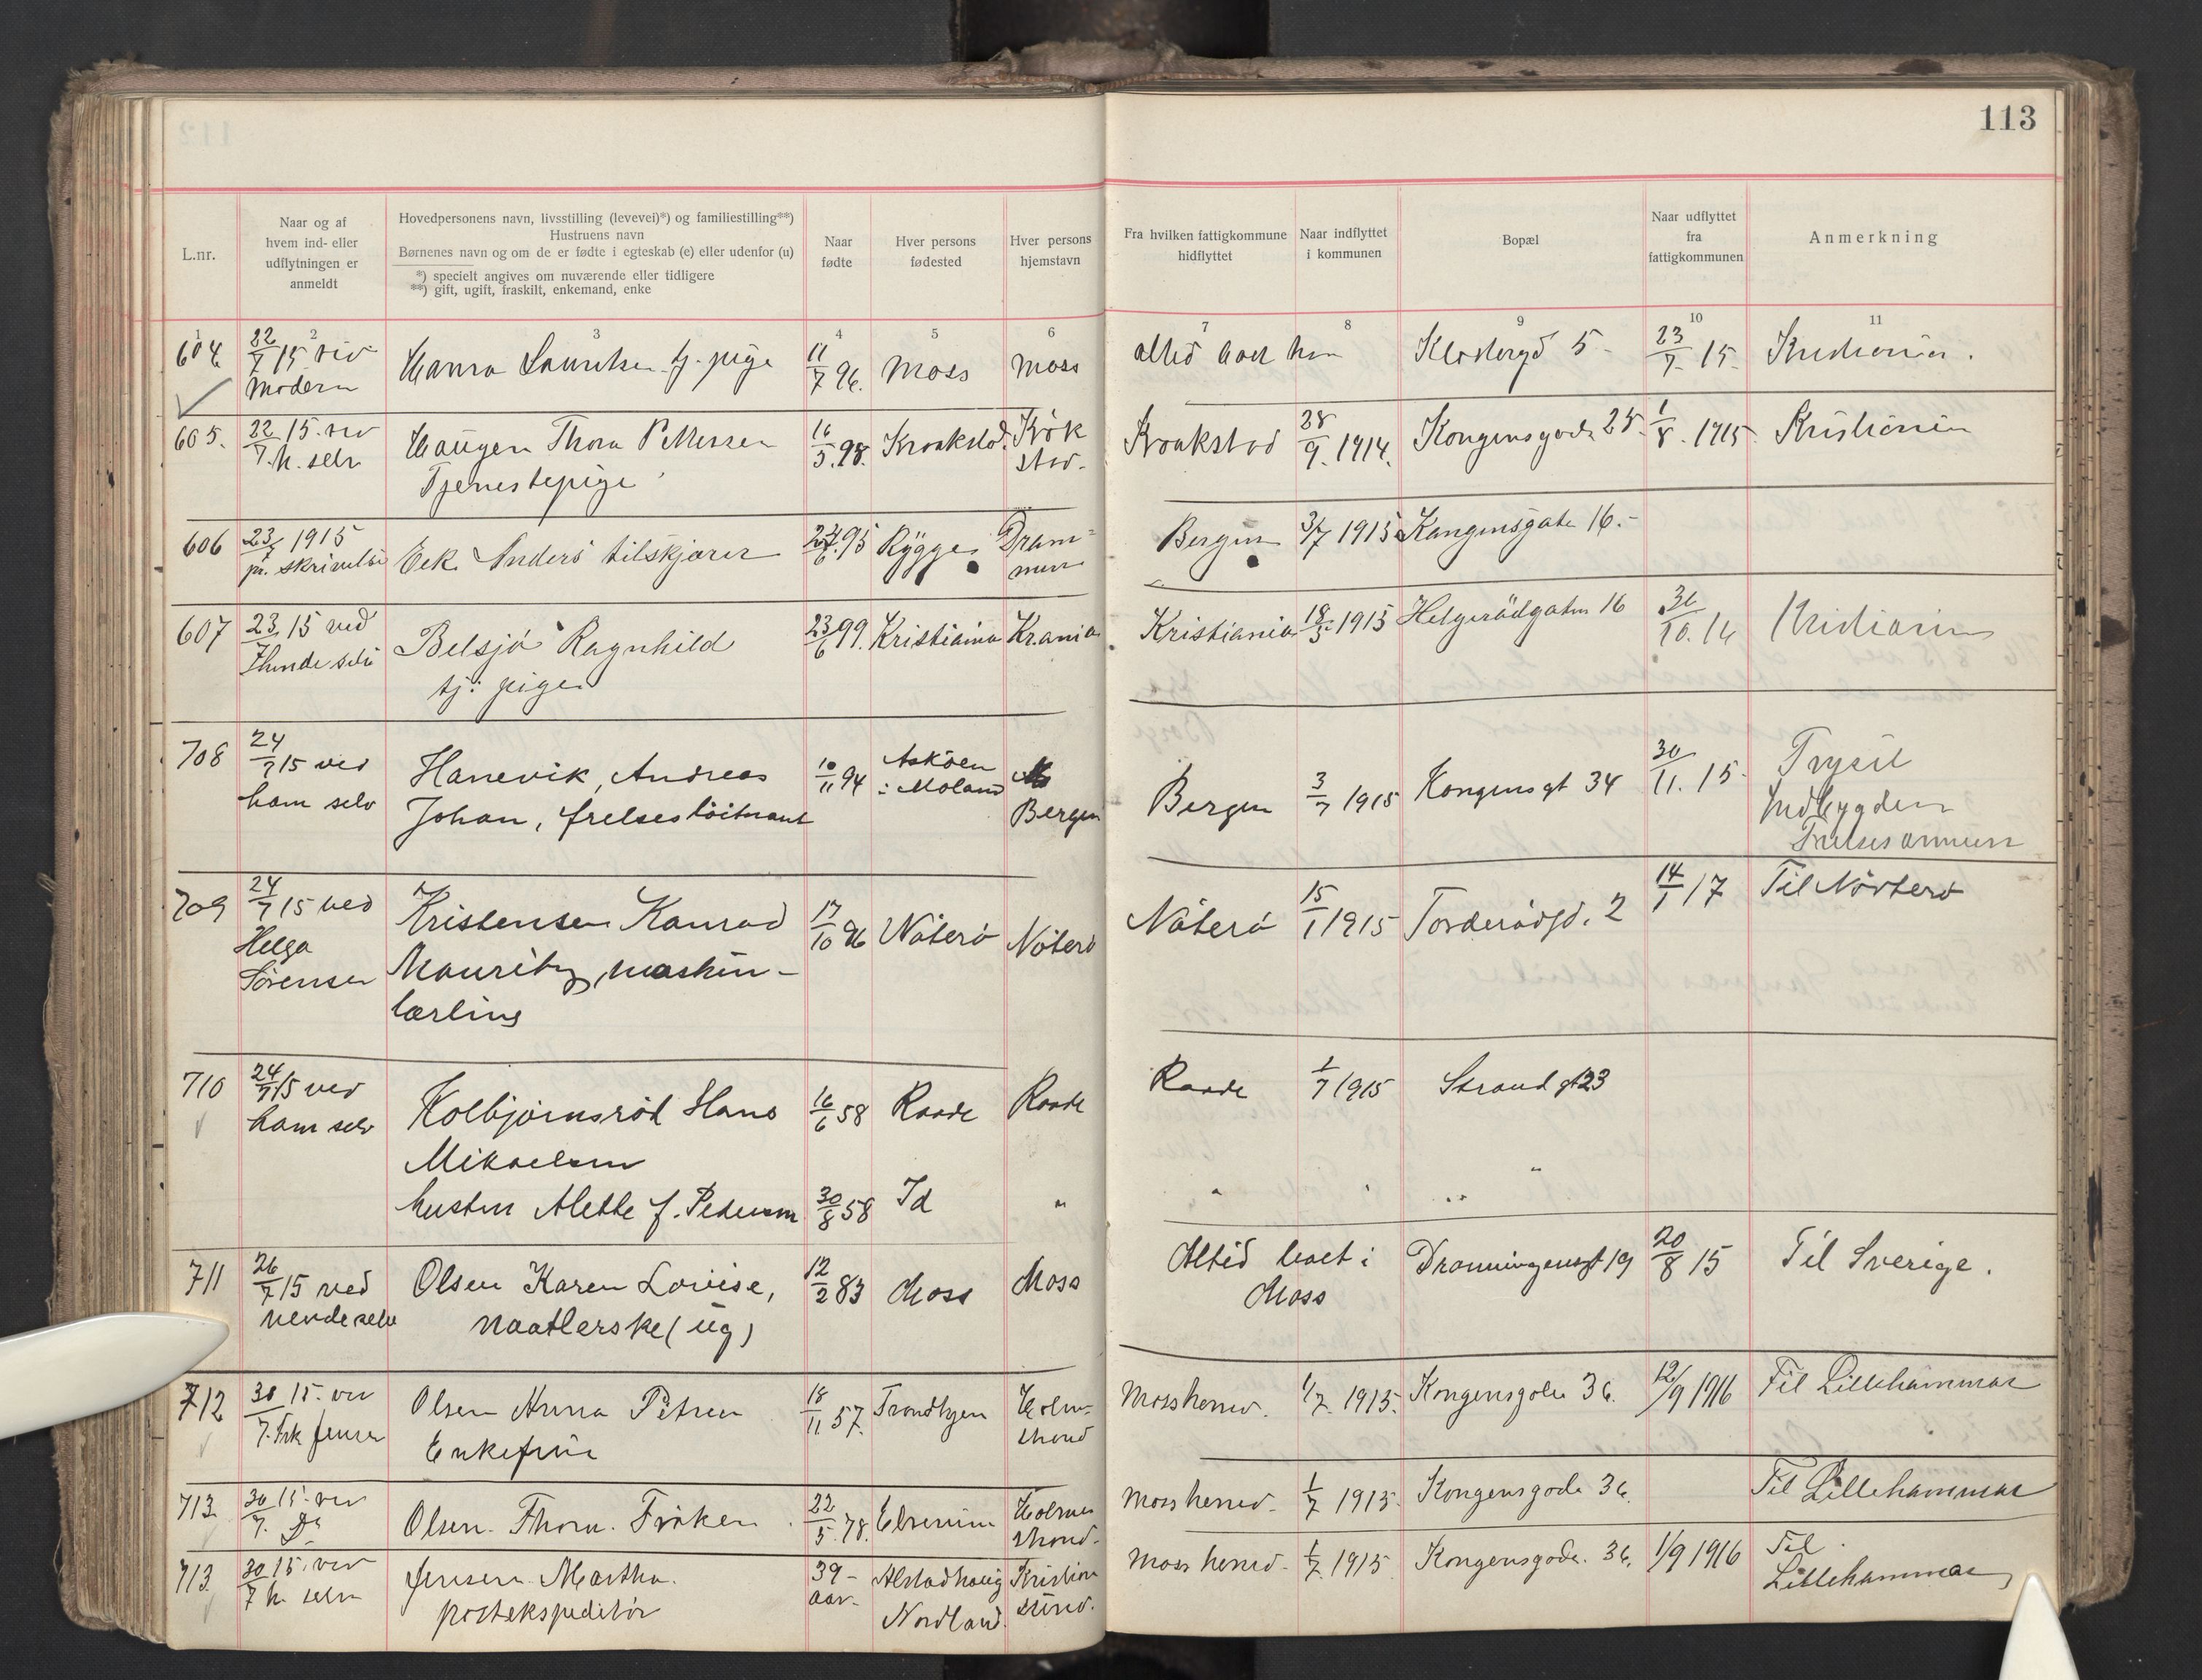 113
L.nr.
Naar og af
hvem ind- eller
udflytningen er
anmeldt
Hovedpersonens navn, livsstilling (levevei)*) og familiestilling**)
Hustruens navn
Børnenes navn og om de er fødte i egteskab (e) eller udenfor (u)
*) specielt angives om nuværende eller tidligere
**) gift, ugift, fraskilt, enkemand, enke
Naar
fødte
Hver persons
fødested
Hver persons
hjemstavn
Fra hvilken fattigkommune
hidflyttet
Naar indflyttet
i kommunen
Bopæl
Naar udflyttet
fra
fattigkommunen
Anmerkning
1 2 3 4 5 6 7 8 9 10 11
604 22/7 15 ved Lauritsen tj. pige 11/7 96. Moss Moss altid boet her 5 23/7 15.
Modern
605. 22/7 15. ved Haugen Thora Pettersen 16/5 98. Kraakstad. Kråk Kraakstad 28/9. 1914. Kongensgade 25. 1/8. 1915 Kristiania
h. selv Tjenestepige stad.
606 23/7 1915 Eek Anders tilskjærer 95 Rygge Dram= Bergen 3/7 1915 Kongensgate 16.-
pr. skrivelse men
607 23/7 15 ved Belsjø Ragnhild 23/6 99. Kristiania Kr.ania Kristiania 18/5 1915 Helgerödgaten 16 31/10. 16 Kristiania
hende selv tj: pige
708 24/7 15 ved Hanevik, Andreas 10/11 94 Asköen Bergen 3/7 1915 Kongensgt 34 30/11. 15. Trysil
ham selv Johan, frelsesløitnant i Moland Bergen Indbygden
Frelsesarmeen
709 24/7 15 ved Kristensen Konrad 17/10 96 Nøterø Nøterø Nøterø 15/1 1915 Torderødgd. 2 14/1 17 Til Nøtterø
Helga Mauritz, maskin-
Sørensen lærling
710 24/7 15 ved Kolbjørnsrød Hans 16/6 58 Raade Raade Raade 1/7 1915 Strandgt 23
ham selv Mikaelsen
hustru Alette f. Pedersen 30/8 58 Id " " " " "
711 26/7 15 ved Olsen Karen Lovise, 12/2 83 Moss Moss Altid boet i Dronningensgt 19 20/8 15 Til Sverige.
hende selv naatlerske (ug) Moss
712 30/7 15. ved Olsen Anna Petrea 18/11 57. Trondhjem Holme- Moss herred. 1/7. 1915. Kongensgade 36. 12/9 1916 Til Lillehammer
Frk Jensen Enkefrue strand
713. 30/7 15. ved Olsen. Thora. Frøken. 22/5 78. Elverum Holme Moss herred. 1/7 1915. Kongensgade 36. Til Lillehammer
Do strand.
713. 30/7 15. ved Jensen Martha. 39- Alstadhoug Kristian Moss herred. 1/7. 1915. Kongensgade. 36. 1/9 1916 Til
h. selv postekspeditør aar. Nordland. sund. Lillehammer